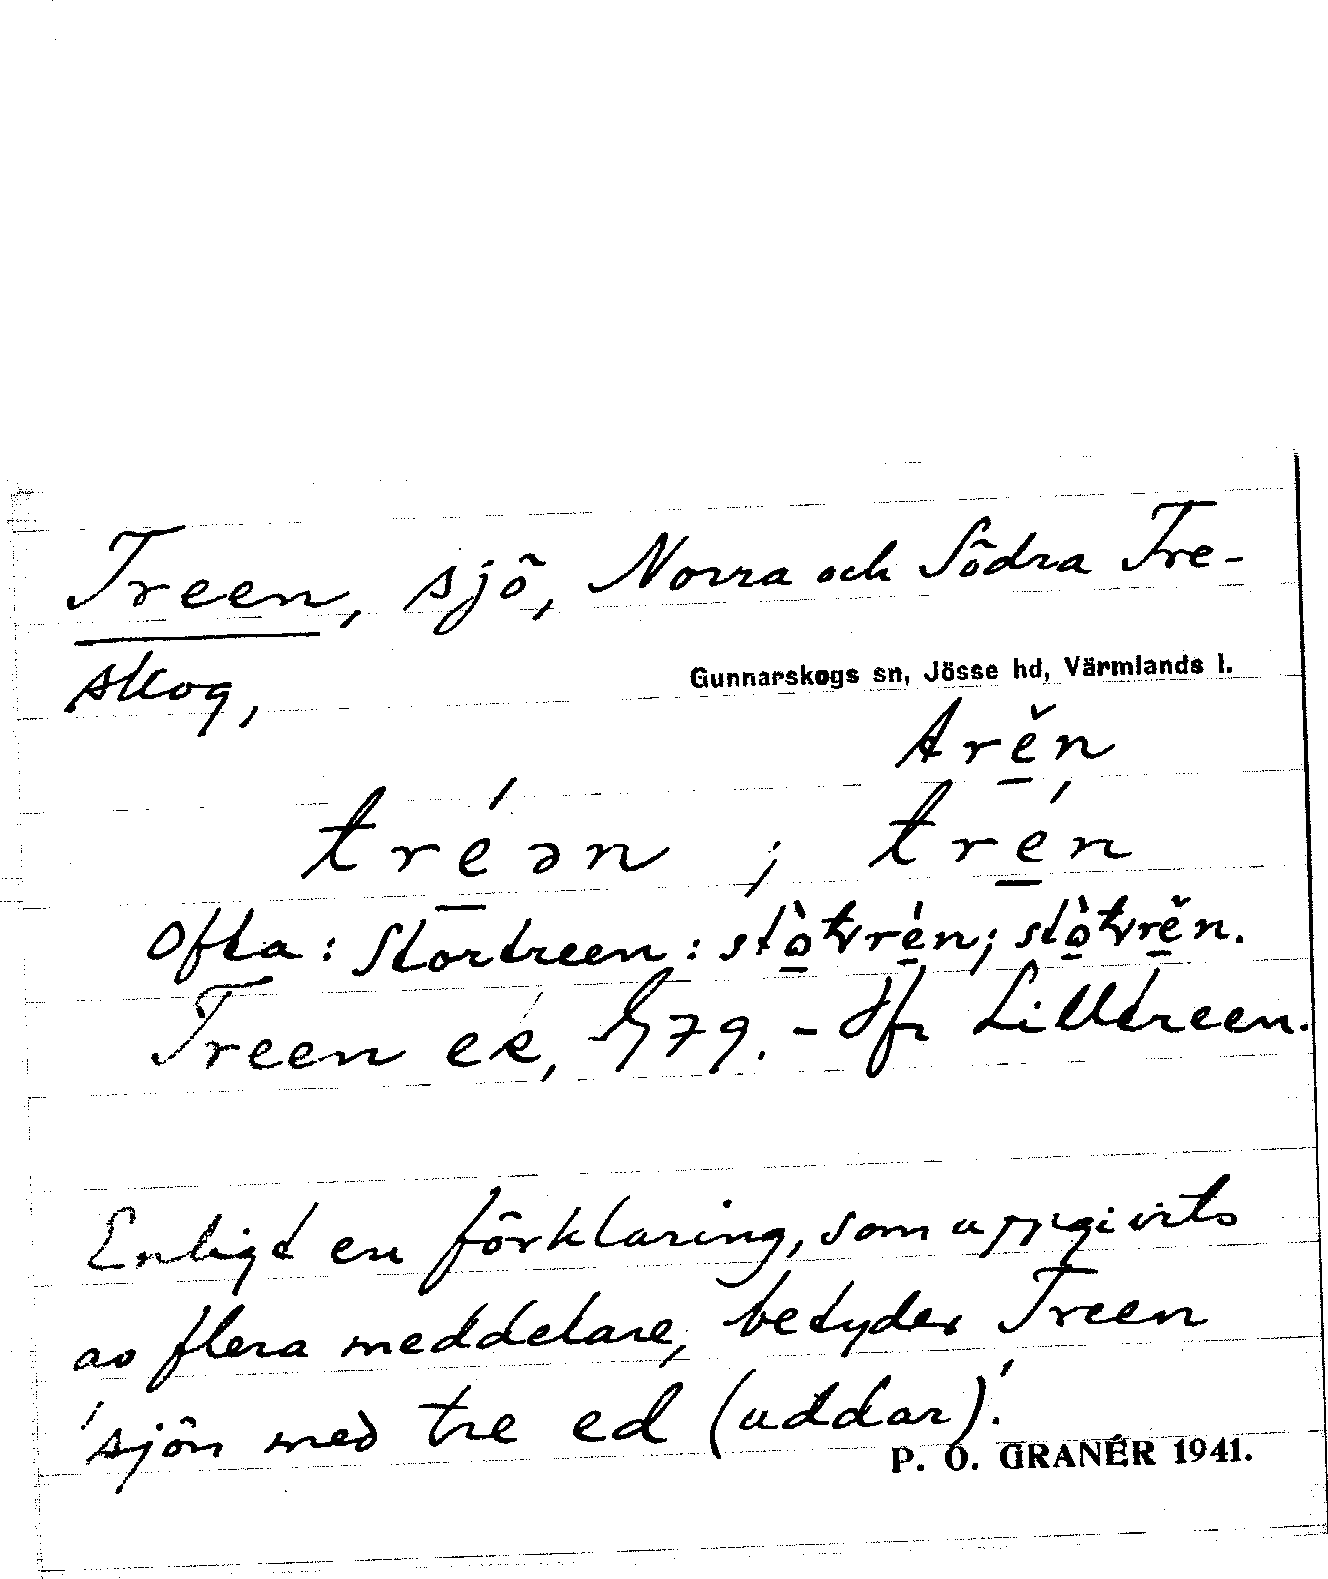 Treen, sjö, Norra och Södra Tre-
skog,
Gunnarskogs sn, Jösse hd, Värmlands l.
trĕn
tréən ; trén
Ofta: Stortreen:
Treen ek, G79. - Jfr Lilltreen.
Enligt en förklaring, som uppgivits
av flera meddelare, betyder Treen
'sjön med tre ed (uddar)'.
P. O. GRANÉR 1941.